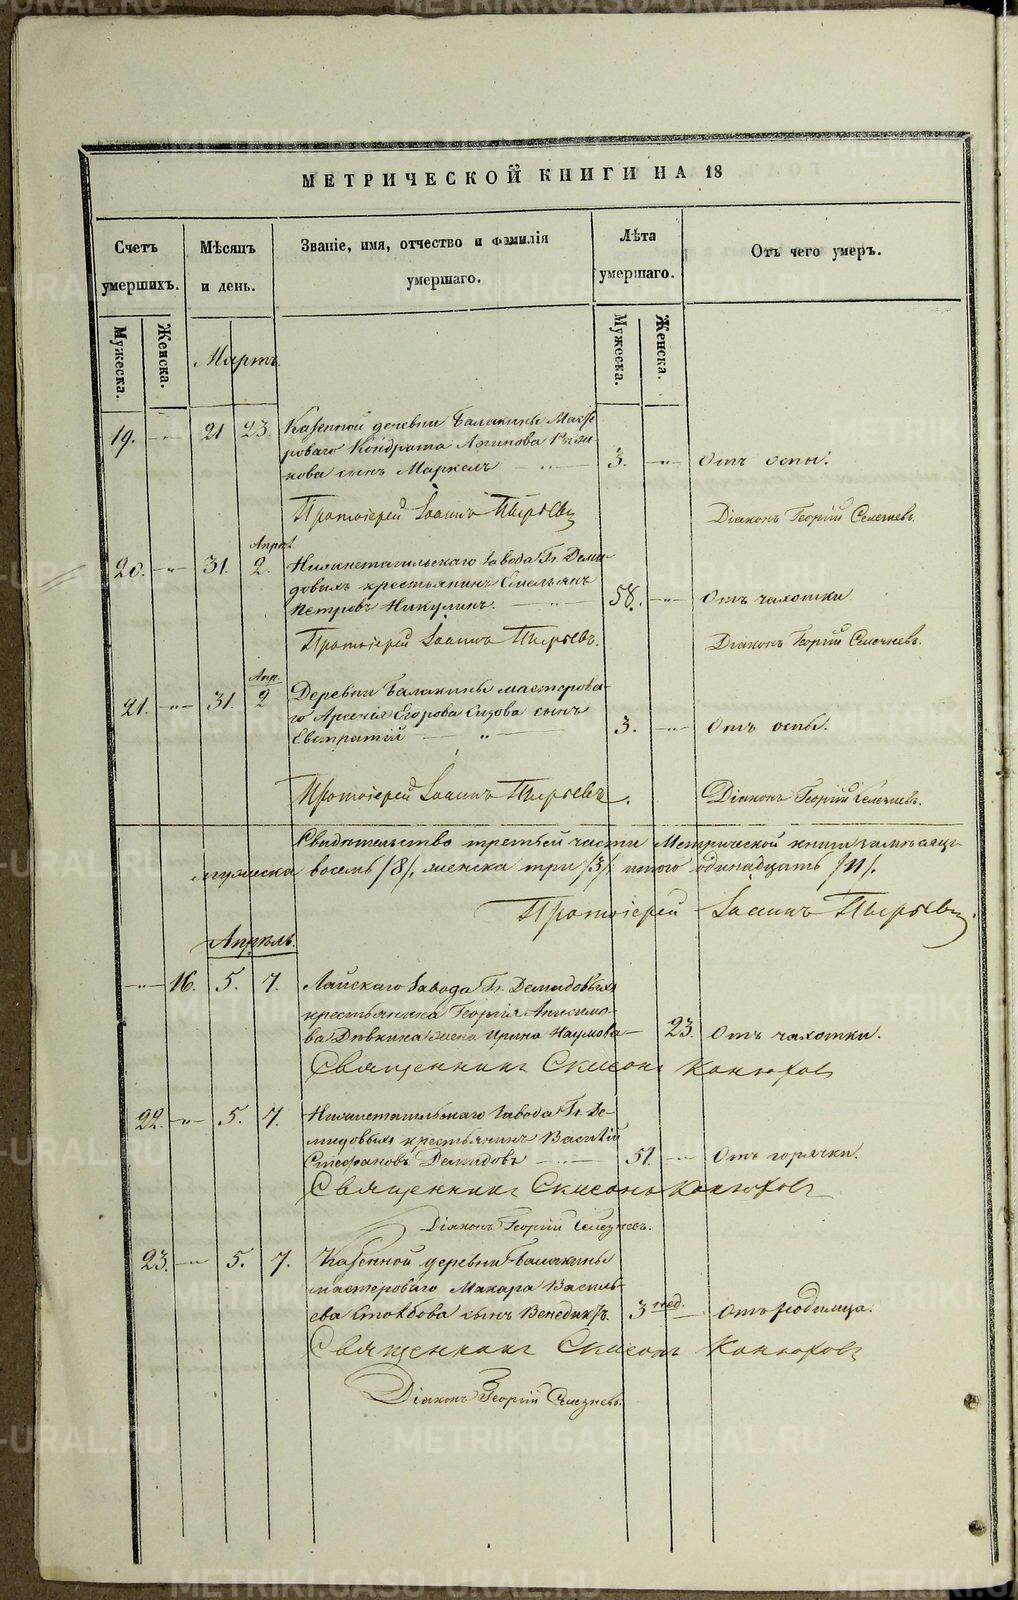 МЕТРИЧЕСКОЙ КНИГИ НА 18
Счетъ умершихъ.
Мѣсяцъ и день.
Званіе, имя, отчество и фамилія умершаго.
Лѣта умершаго.
Отъ чего умеръ.
Мужеска. Женска.
Мужеска. Женска.
Мартъ.
19. -"- 21 23. Казенной деревни Балакины Масте
роваго Кондрата Логинова
кова сынъ Маркелъ -"- 3. -"- Отъ оспы.
Протоіерей Іоаннъ Пырьевъ
Діаконъ Георгій Селезневъ.
Апрѣл.
20. -"- 31. 2. Нижнетагильскаго завода Гг. Деми-
довыхъ крестьянинъ Емельянъ
Петровъ Никулинъ. -"- 58. -"- Отъ чахотки
Протоіерей Іоаннъ Пырьевъ.
Діаконъ Георгій Селезневъ.
Апр.
21. -"- 31. 2 Деревни Балакины мастерова-
го Арсенія Егорова Кизова сынъ
Евстратій -"- 3. -"- Отъ оспы.
Протоіерей Іоаннъ Пырьевъ.
Діаконъ Георгій Селезневъ.
Свидѣтельство третьей части Метрической книги за мѣсяцъ
мужеска восемь /8/, женска три /3/ итого одинадцать /11/.
Протоіерей Іоаннъ Пырьевъ
Апрѣль.
-"- 16. 5. 7. Лайскаго завода Гг. Демидовыхъ
крестьянина Георгія Анисимо-
ва Дѣвкина жена Ирина Наумова 23. Отъ чахотки.
Священникъ Симеонъ Конюховъ
22. -"- 5. 7. Нижнетагильскаго завода Гг. Де-
мидовыхъ крестьянинъ Василій
Стефановъ Демидовъ -"- 51. -"- Отъ горячки.
Священникъ Симеонъ Конюховъ
Діаконъ Георгій Селезневъ.
23. -"- 5. 7. Казенной деревни Балакины
мастероваго Макара Василь-
ева Столбова сынъ Венедиктъ. 3 нед. Отъ родимца.
Священникъ Симеонъ Конюховъ
Діаконъ Георгій Селезневъ.
METRIKI.GASO-URAL.RU